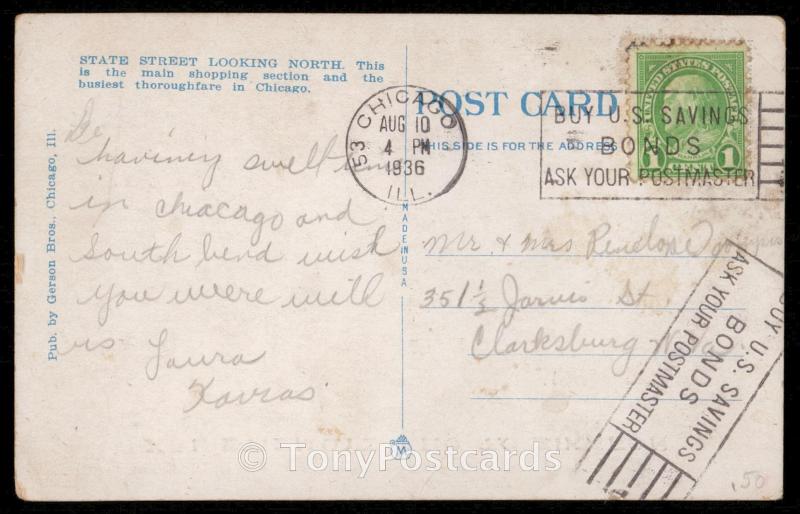 STATE STREET LOOKING NORTH. This
is the main shopping section and the
busiest thoroughfare in Chicago.
Pub. by Gerson Bros., Chicago, Ill.
POST CARD
THIS SIDE IS FOR THE ADDRESS
MADE IN USA
53 CHICAGO
AUG 10
4 PM
1936
ILL.
BUY U.S. SAVINGS
BONDS
ASK YOUR POSTMASTER
UNITED STATES POSTAGE
1 CENT 1
having swell
in chicago and
South bend wish
you were with
us Laura
Kavras
Mr. & Mrs Penelope
351 1/2 Jarvis St.
Clarksburg W. Va
BUY U.S. SAVINGS
BONDS
ASK YOUR POSTMASTER
M
© TonyPostcards
.50